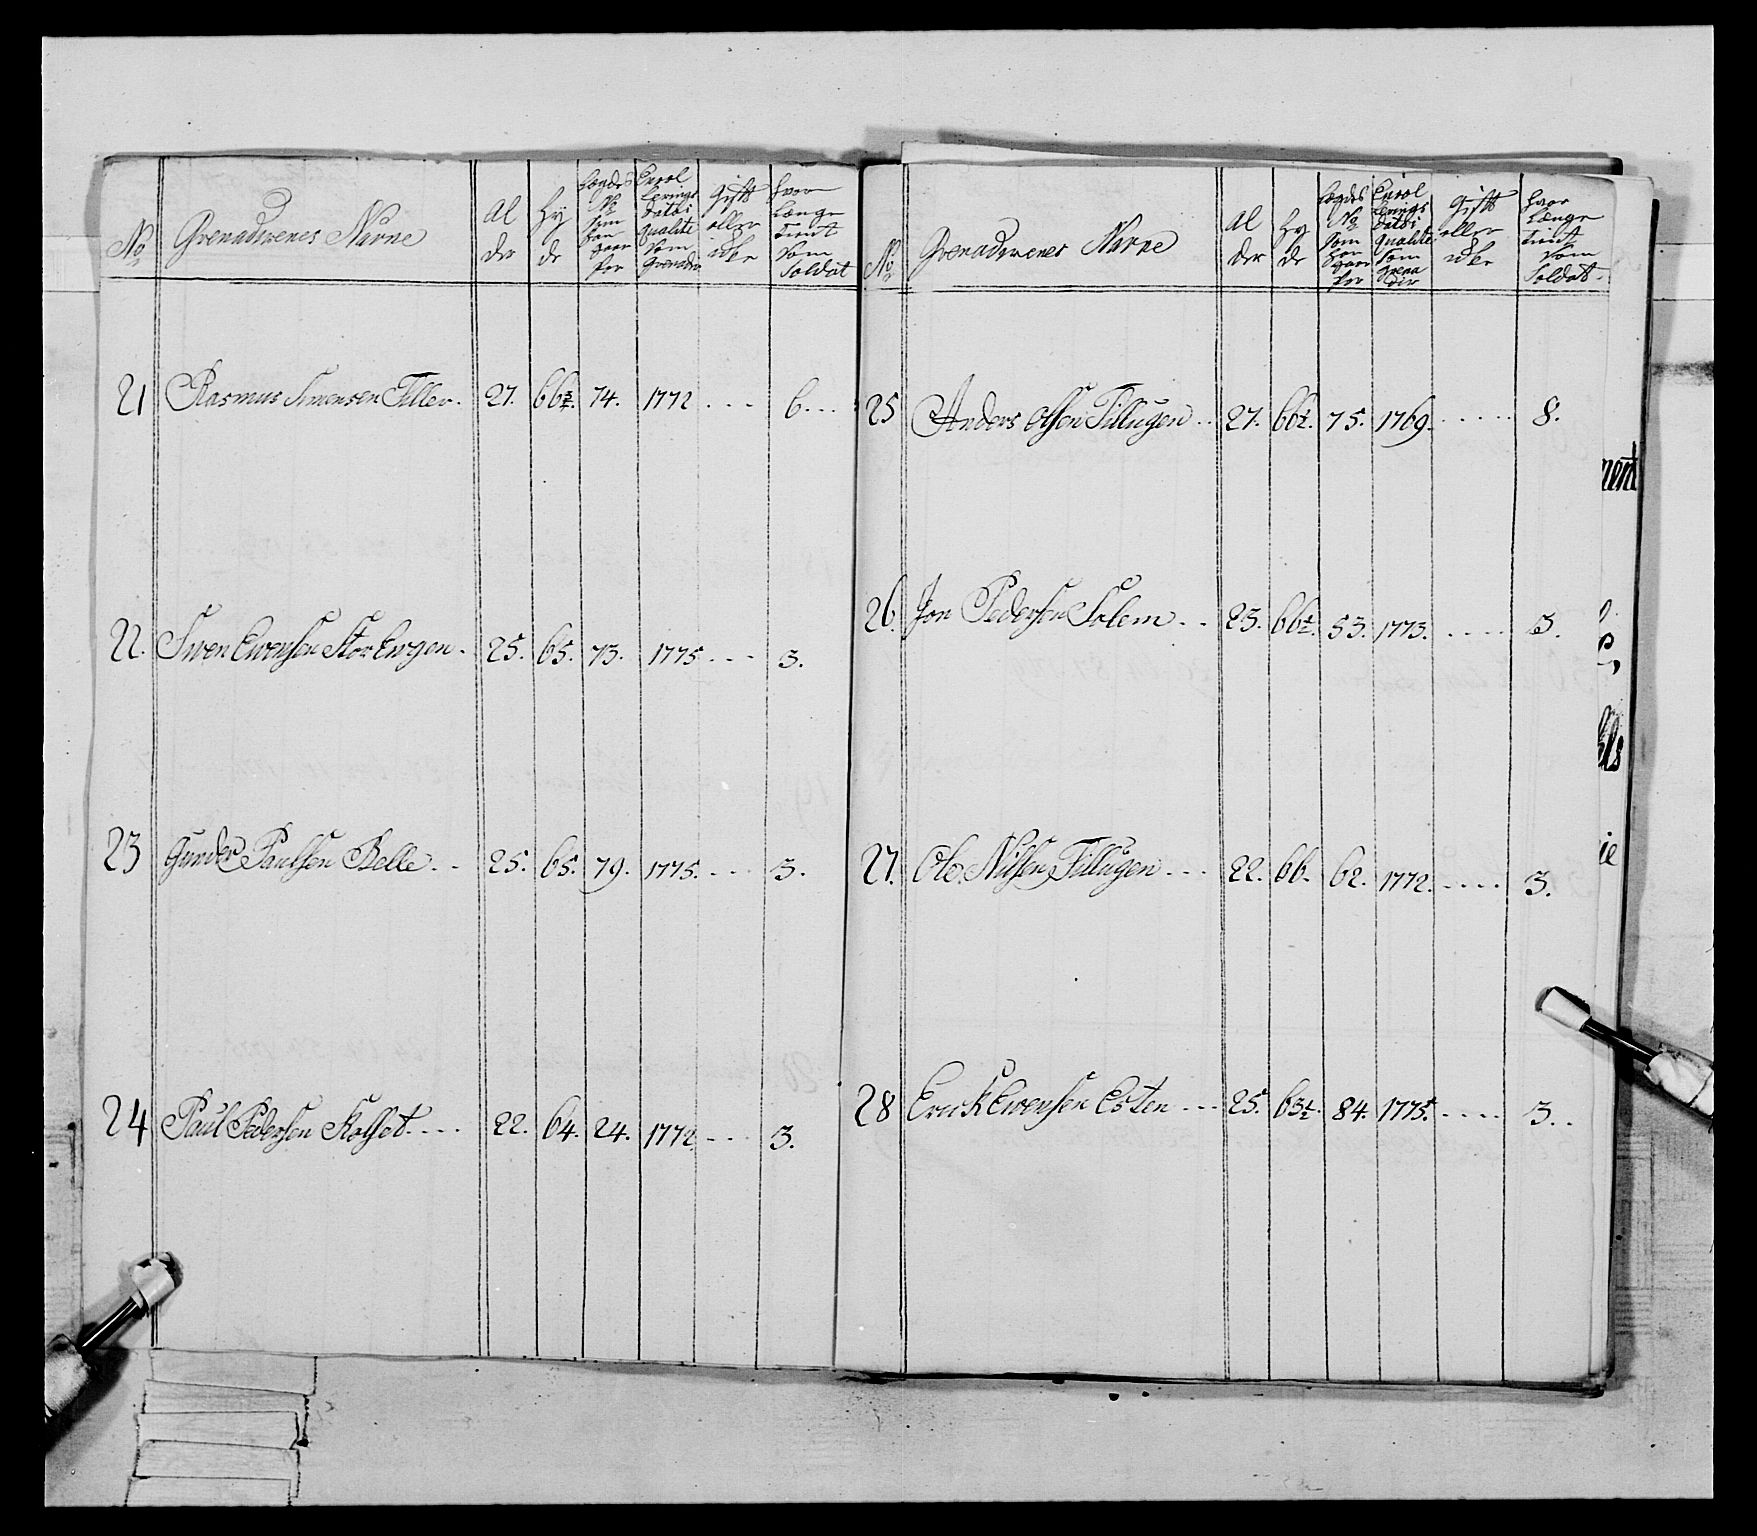 No
Grenaderenes Navne
Al
der
Hy
de
Legdes
No
som
han
staar
for
Enrol
lerings
datoi
qualite
som
Grenadir
Gift
eller
icke
hvor
længe
tient
som
Soldat
21 Rasmus Simensen Tiller. 27. 66¾. 74. 1772 ... 6...
22. Swen Ewensen Stor Ewgen. 25. 65. 73. 1775 ... 3.
23 Gunder Paulsen Belle.. 25. 65. 79. 1775. ... 3.
24 Paul Pedersen Kolset.... 22. 64. 24. 1772 ... 3.
No
Grenaderenes Navne
Al
der
Hy
de
Legdes
No
som
han
staar
for
Enrol
lerings
datoi
qualite
som
Grena
dir
Gift
eller
icke
hvor
længe
tient
som
Soldat.
25 Anders Olsen Tillugen.. 27. 66½. 75. 1769. ..... 8.
26. Jon Pedersen Solem.. 23. 66½. 53. 1773. .... 3.
27. Ole Nilsen Tillugen... 22. 66. 62. 1772. .... 3.
28 Erick Ewensen Esten... 25. 63½. 84. 1775. .... 3..